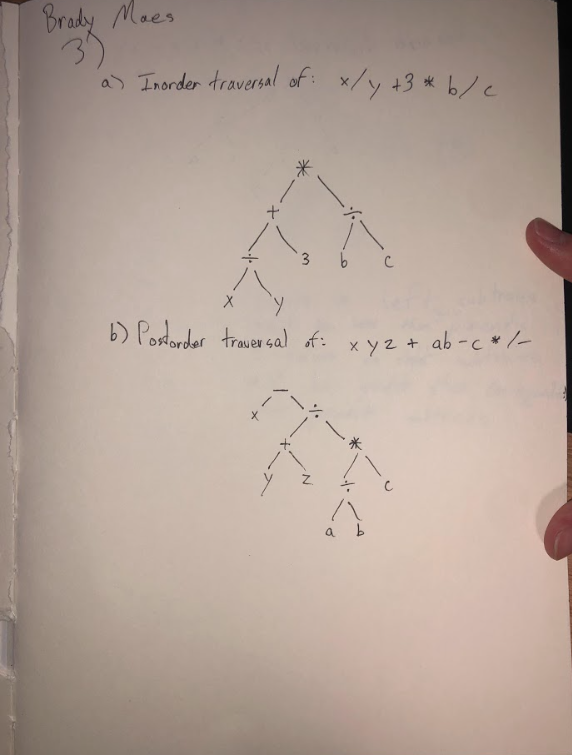 Brady Maes
3)
a) Inorder traversal of: x/y +3 * b/c
*
+ ÷
÷ 3 b c
x y
b) Postorder traversal of: x y z + ab - c * / -
-
x ÷
+ *
y z ÷ c
a b